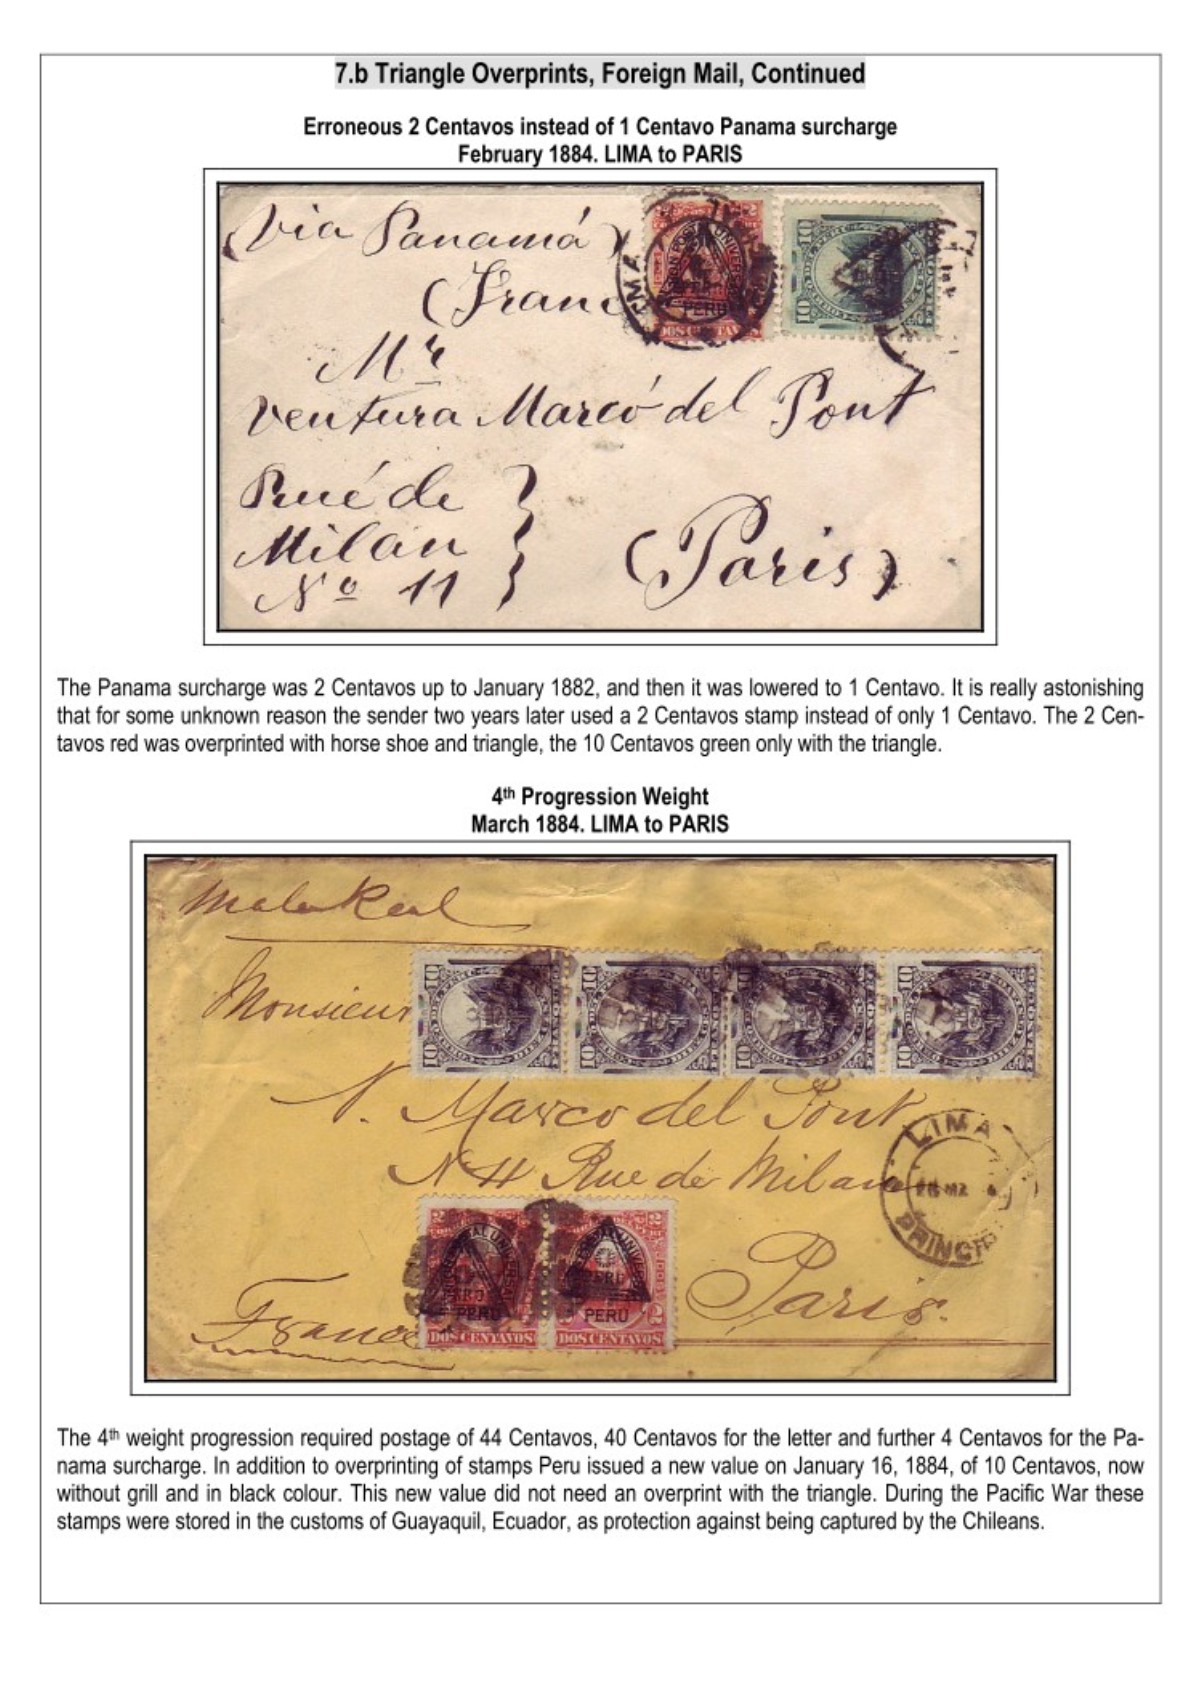 7.b Triangle Overprints, Foreign Mail, Continued
Erroneous 2 Centavos instead of 1 Centavo Panama surcharge
February 1884. LIMA to PARIS
(Via Panamá)
(Franc
UNION POSTAL UNIVERSAL
PERU
10
10
LIMA
Mr
Ventura Marcó del Pont
Rué de
Milán
Nº 11
(Paris)
The Panama surcharge was 2 Centavos up to January 1882, and then it was lowered to 1 Centavo. It is really astonishing
that for some unknown reason the sender two years later used a 2 Centavos stamp instead of only 1 Centavo. The 2 Cen-
tavos red was overprinted with horse shoe and triangle, the 10 Centavos green only with the triangle.
4th Progression Weight
March 1884. LIMA to PARIS
Monsieur
10 10 10 10
10 10 10 10
Marco del Pont
Rue de Milan
LIMA
PRINCIP
Paris.
France
2 2
PERU PERU
DOS CENTAVOS DOS CENTAVOS
The 4th weight progression required postage of 44 Centavos, 40 Centavos for the letter and further 4 Centavos for the Pa-
nama surcharge. In addition to overprinting of stamps Peru issued a new value on January 16, 1884, of 10 Centavos, now
without grill and in black colour. This new value did not need an overprint with the triangle. During the Pacific War these
stamps were stored in the customs of Guayaquil, Ecuador, as protection against being captured by the Chileans.